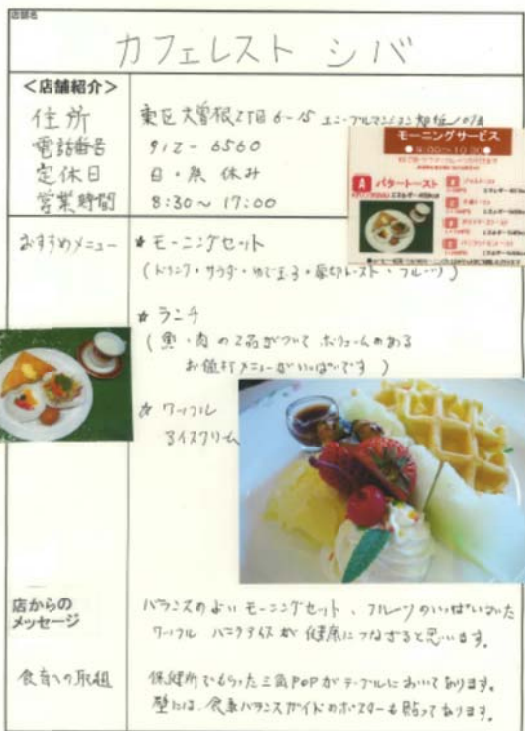 店舗名
カフェレスト シバ
<店舗紹介>
住所 東区大曽根2丁目6-15
電話番号 912-6560
定休日 日・祭 休み
営業時間 8:30~17:00
モーニングサービス
A バタートースト
おすすめメニュー ☆モーニングセット
(ドリンク・サラダ・ゆで玉子・厚切トースト・フルーツ)
☆ランチ
(魚・肉の2品がついて ボリュームのある
お値打メニューがいっぱいです)
☆ワッフル
アイスクリーム
店からの
メッセージ
バランスのよいモーニングセット、フルーツのいっぱいついた
ワッフル バニラアイスが健康につながると思います。
食育への取組 保健所でもらった三角POPがテーブルにおいてあります。
壁には、食事バランスガイドのポスターも貼ってあります。